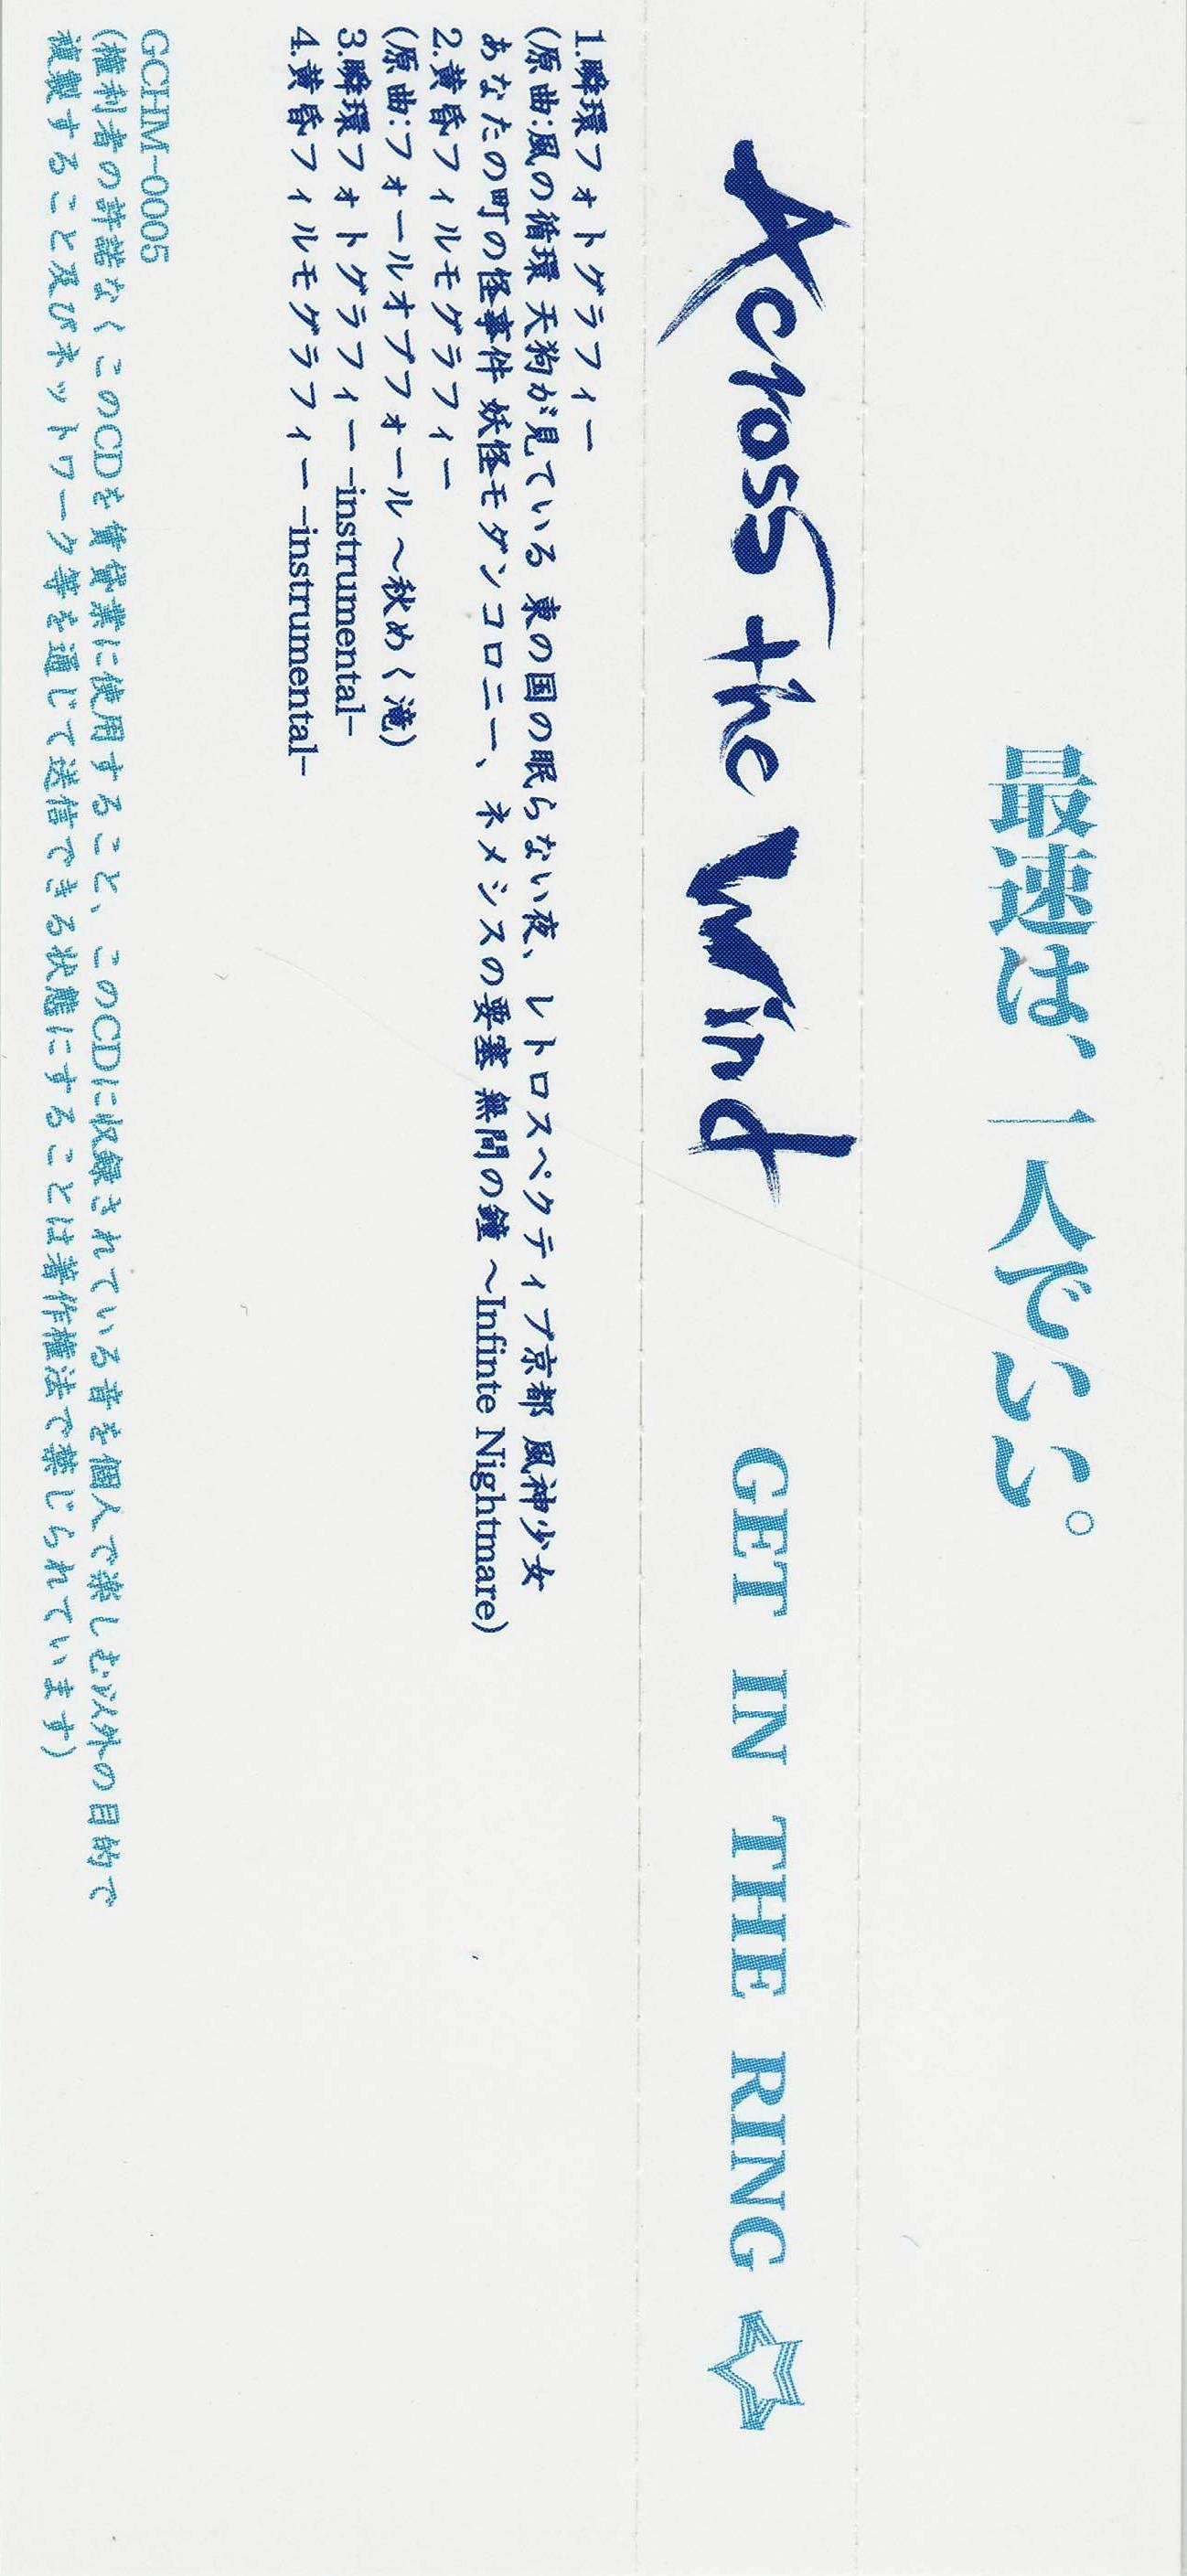 最速は、一人でいい。
Across the Wind GET IN THE RING ☆
1.瞬環フォトグラフィー
(原曲:風の循環 天狗が見ている 東の国の眠らない夜、レトロスペクティブ京都 風神少女
あなたの町の怪事件 妖怪モダンコロニー、ネメシスの要塞 無間の鐘 ～Infinte Nightmare)
2.黄昏フィルモグラフィー
(原曲:フォールオブフォール ～秋めく滝)
3.瞬環フォトグラフィー -instrumental-
4.黄昏フィルモグラフィー -instrumental-
GCHM-0005
(権利者の許諾なくこのCDを賃貸業に使用すること、このCDに収録されている音を個人で楽しむ以外の目的で
複製すること及びネットワーク等を通じて送信できる状態にすることは著作権法で禁じられています)